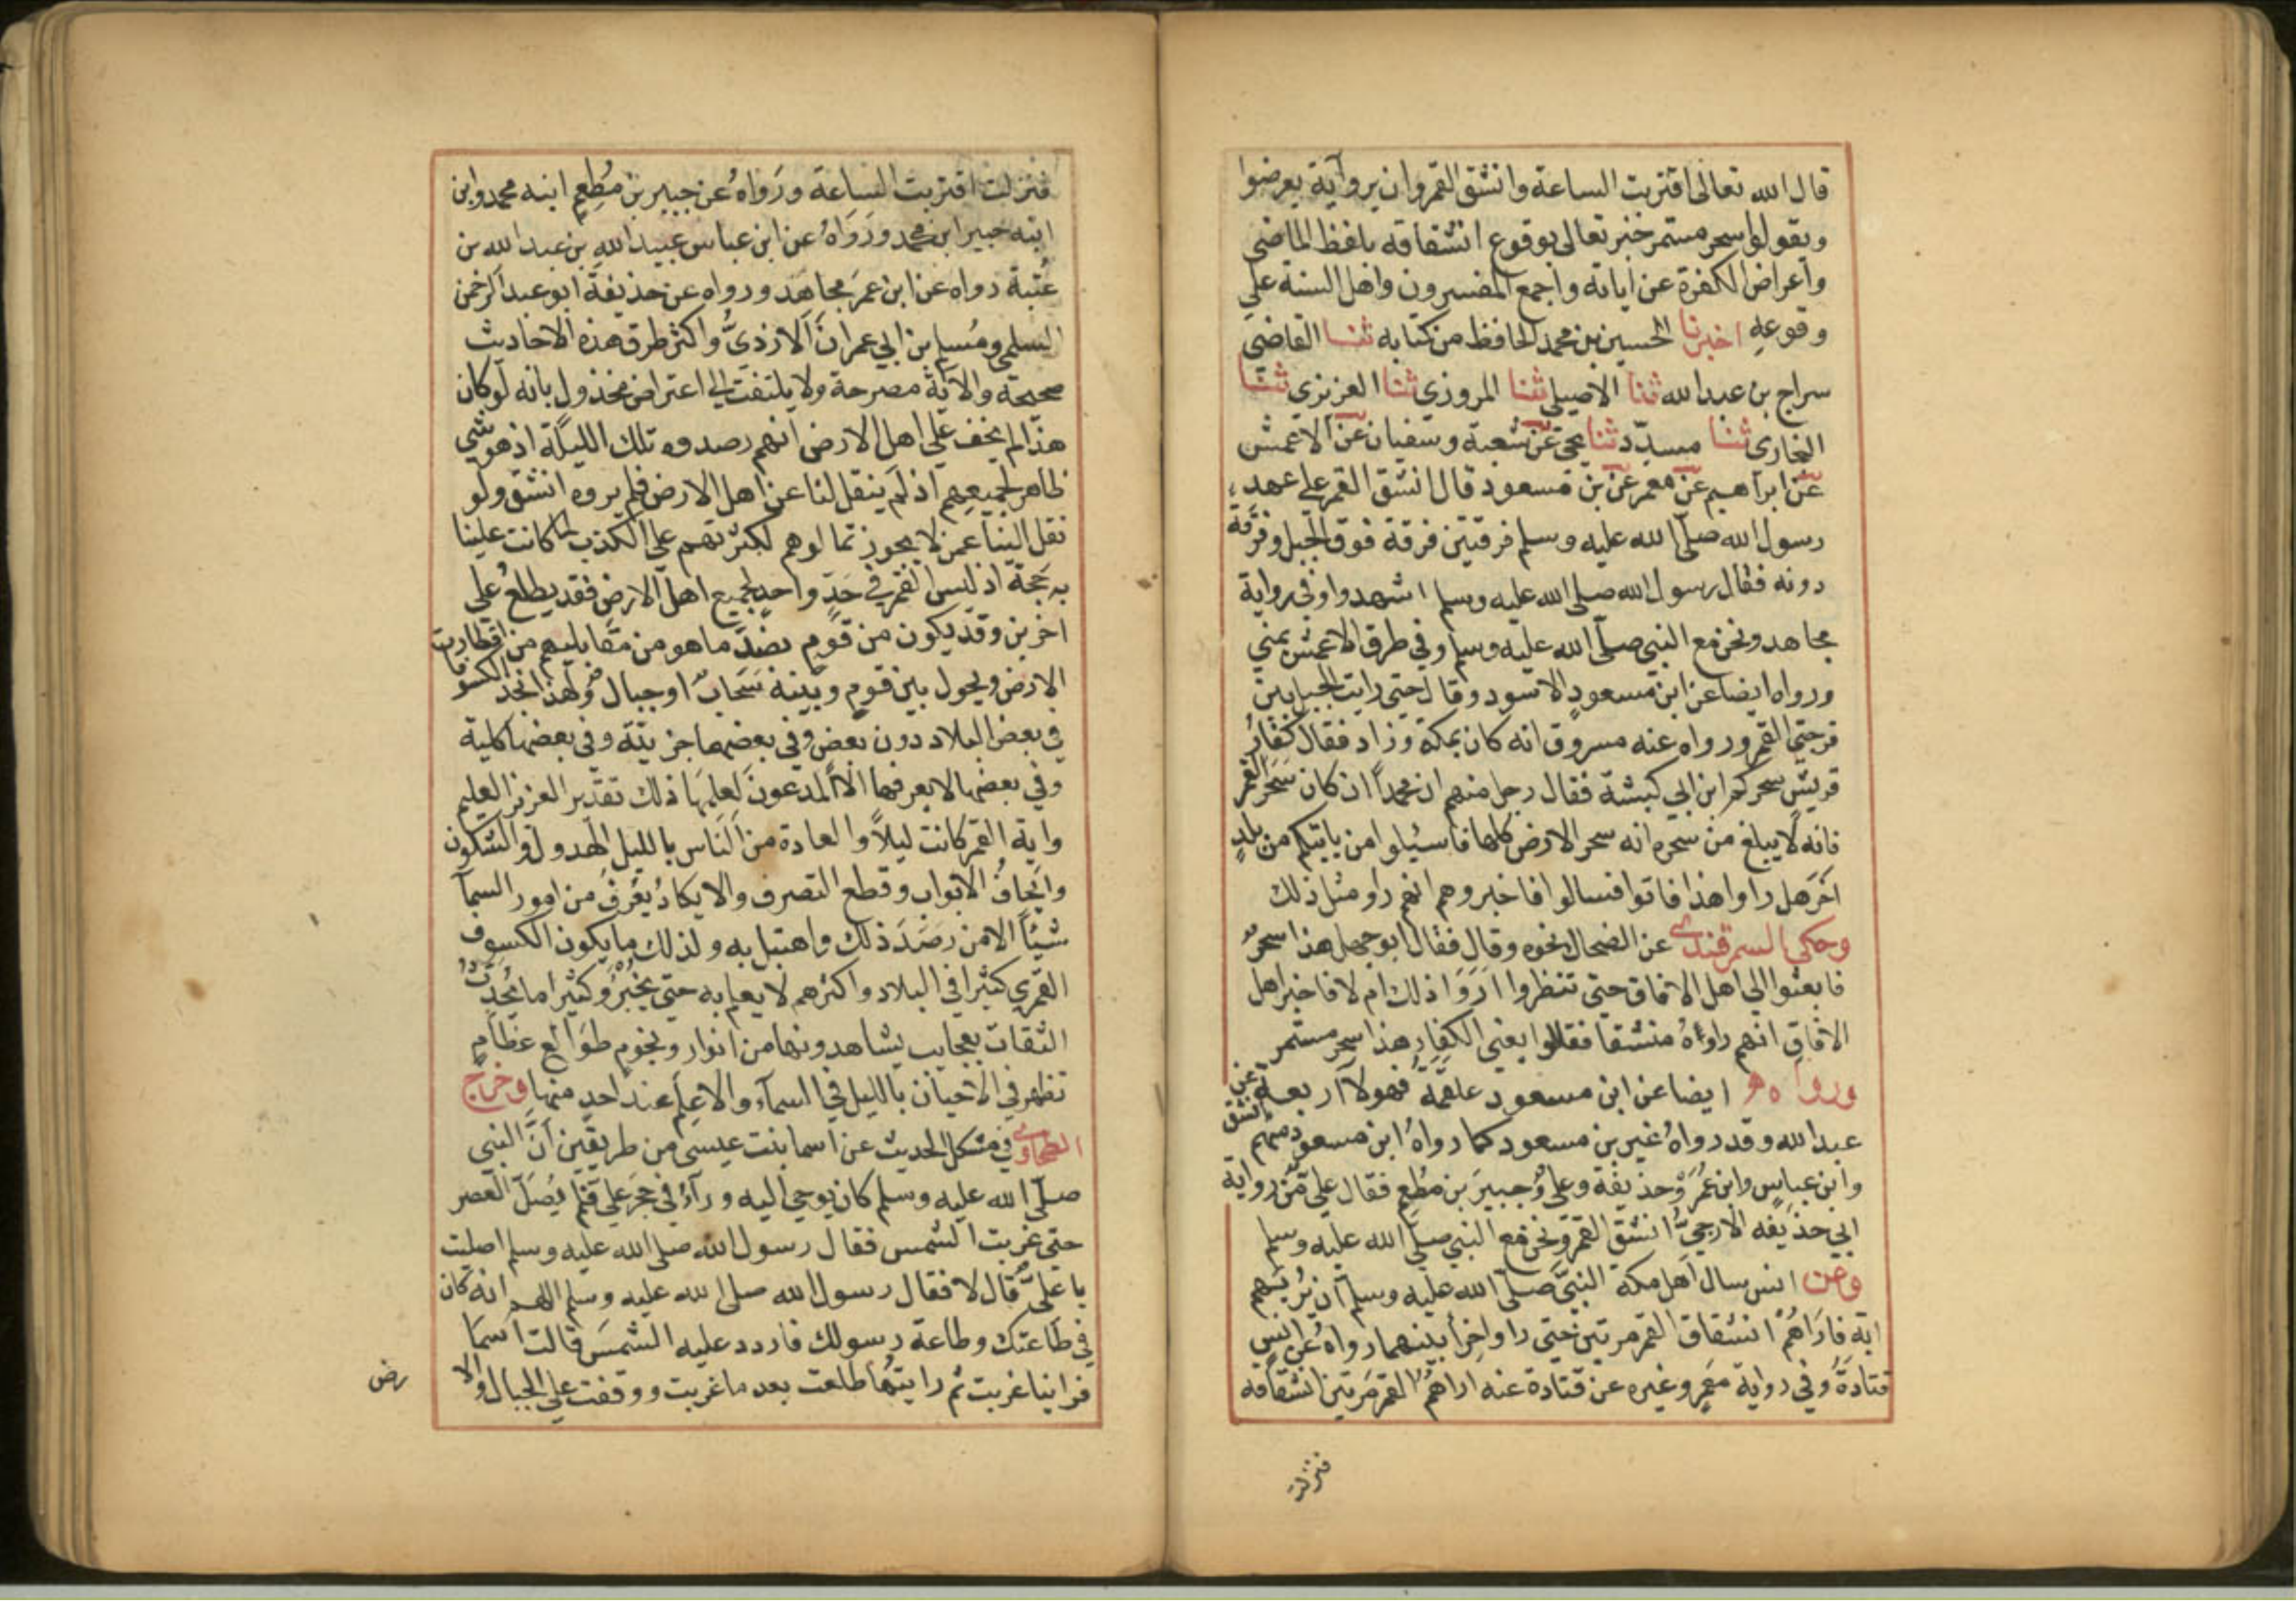 قال الله تعالى اقتربت الساعة وانشق القمر وان يروا آية يعرضوا
ويقولوا سحر مستمر خبر تعالى بوقوع انشقاقه بلفظ الماضي
واعراض الكفرة عن آياته واجمع المفسرون واهل السنة على
وقوعه اخبرنا الحسين بن محمد الحافظ من كتابه ثنا القاضي
سراج بن عبد الله ثنا الاصيلي ثنا المروزي ثنا العزيزي ثنا
البخارى ثنا مسدّد ثنا يحيى عن شعبة وسفيان عن الاعمش
عن ابراهيم عن معمر عن بن مسعود قال انشق القمر على عهد
رسول الله صلى الله عليه وسلم فرقتين فرقة فوق الجبل وفرقة
دونه فقال رسول الله صلى الله عليه وسلم اشهدوا وفي رواية
مجاهد ونحن مع النبي صلى الله عليه وسلم وفي طرق الاعمش بمني
ورواه ايضا عن ابن مسعود الاسود وقال حتى رايت الجبل بين
فرجتي القمر ورواه عنه مسروق انه كان بمكة وزاد فقال كفار
قريش سحركم ابن ابي كبشة فقال رجل منهم ان محمداً ان كان سحر القمر
فانه لا يبلغ من سحره انه سحر الارض كلها فاسئلوا من ياتيكم من بلد
آخر هل راوا هذا فاتوا فسالوا فاخبروهم انهم راو مثل ذلك
وحكى السمرقندي عن الضحاك نحوه وقال فقال ابو جهل هذا سحر
فابعثوا الى اهل الافاق حتى تنظروا اروا ذلك ام لا فاخبر اهل
الافاق انهم راوه منشقا فقالوا يعني الكفار هذا سحر مستمر
ورواه ايضا عن ابن مسعود علقمة فهولآء اربعة عن
عبد الله وقد رواه غير بن مسعود كما رواه ابن مسعود منهم انشق
وابن عباس وابن عمر وحذيفة وعلي وجبير بن مطعم فقال علي من رواية
ابي حذيفه الارحبي انشق القمر ونحن مع النبي صلى الله عليه وسلم
وعن انس سال اهل مكة النبي صلى الله عليه وسلم ان يريهم
اية فاراهم انشقاق القمر مرتين حتى راوا حرا بينهما رواه عن انس
قتادة وفي رواية معمر وغيره عن قتادة عنه اراهم القمر مرتين انشقاقه
فنزلت
فنزلت اقتربت الساعة ورواه عن جبير بن مطعم ابنه محمد وابن
ابنه جبير ابن محمد ورواه عن ابن عباس عبيد الله بن عبد الله بن
عتبة رواه عن ابن عمر مجاهد ورواه عن حذيفة ابو عبد الرحمن
السلمي ومسلم بن ابي عمران الازدي واكثر طرق هذه الاحاديث
صحيحة والآية مصرحة ولا يلتفت الى اعتراض مخذول بانه لو كان
هذا لم يخف على اهل الارض انهم رصدوه تلك الليلة اذ هو شي
ظاهر لجميعهم اذ لم ينقل لنا عن اهل الارض فلم يروه انشق ولو
نقل الينا عمن لا يجوز تمالوهم لكثرتهم على الكذب لما كانت علينا
به حجة اذ ليس القمر في حد واحد لجميع اهل الارض فقد يطلع على
اخرين وقد يكون من قوم بضد ما هو من مقابليهم من اقطار
الارض ويحول بين قوم وبينه سحاب او جبال ولهذا نجد الكسوفات
في بعض البلاد دون بعض وفي بعضها جزيئة وفي بعضها كلية
وفي بعضها لا يعرفها الا المدعون لعلمها ذلك تقدير العزيز العليم
واية القمر كانت ليلاً والعادة من الناس بالليل الهدو والسكون
وايجاف الابواب وقطع التصرف والا يكاد يعرف من امور السمآ
شيئاً الا من رصد ذلك واهتبل به ولذلك ما يكون الكسوف
القمري كثيرا في البلاد واكثرهم لا يعلم به حتى يخبر وكثيرا ما يحدث
الثقات بعجايب يشاهدونها من انوار ونجوم طوالع عظام
تظهر في الاحيان بالليل في السمآء والا علم عند احد منها وخرج
الطحاوي في مشكل الحديث عن اسما بنت عيسى من طريقين ان النبي
صلى الله عليه وسلم كان يوحي اليه وراءه في حجر علي فلم يصل العصر
حتى غربت الشمس فقال رسول الله صلى الله عليه وسلم اصليت
يا علي قال لا فقال رسول الله صلى الله عليه وسلم اللهم انه كان
في طاعتك وطاعة رسولك فاردد عليه الشمس قالت اسما
فرايتها غربت ثم رايتها طلعت بعد ما غربت ووقفت على الجبال والا
رض